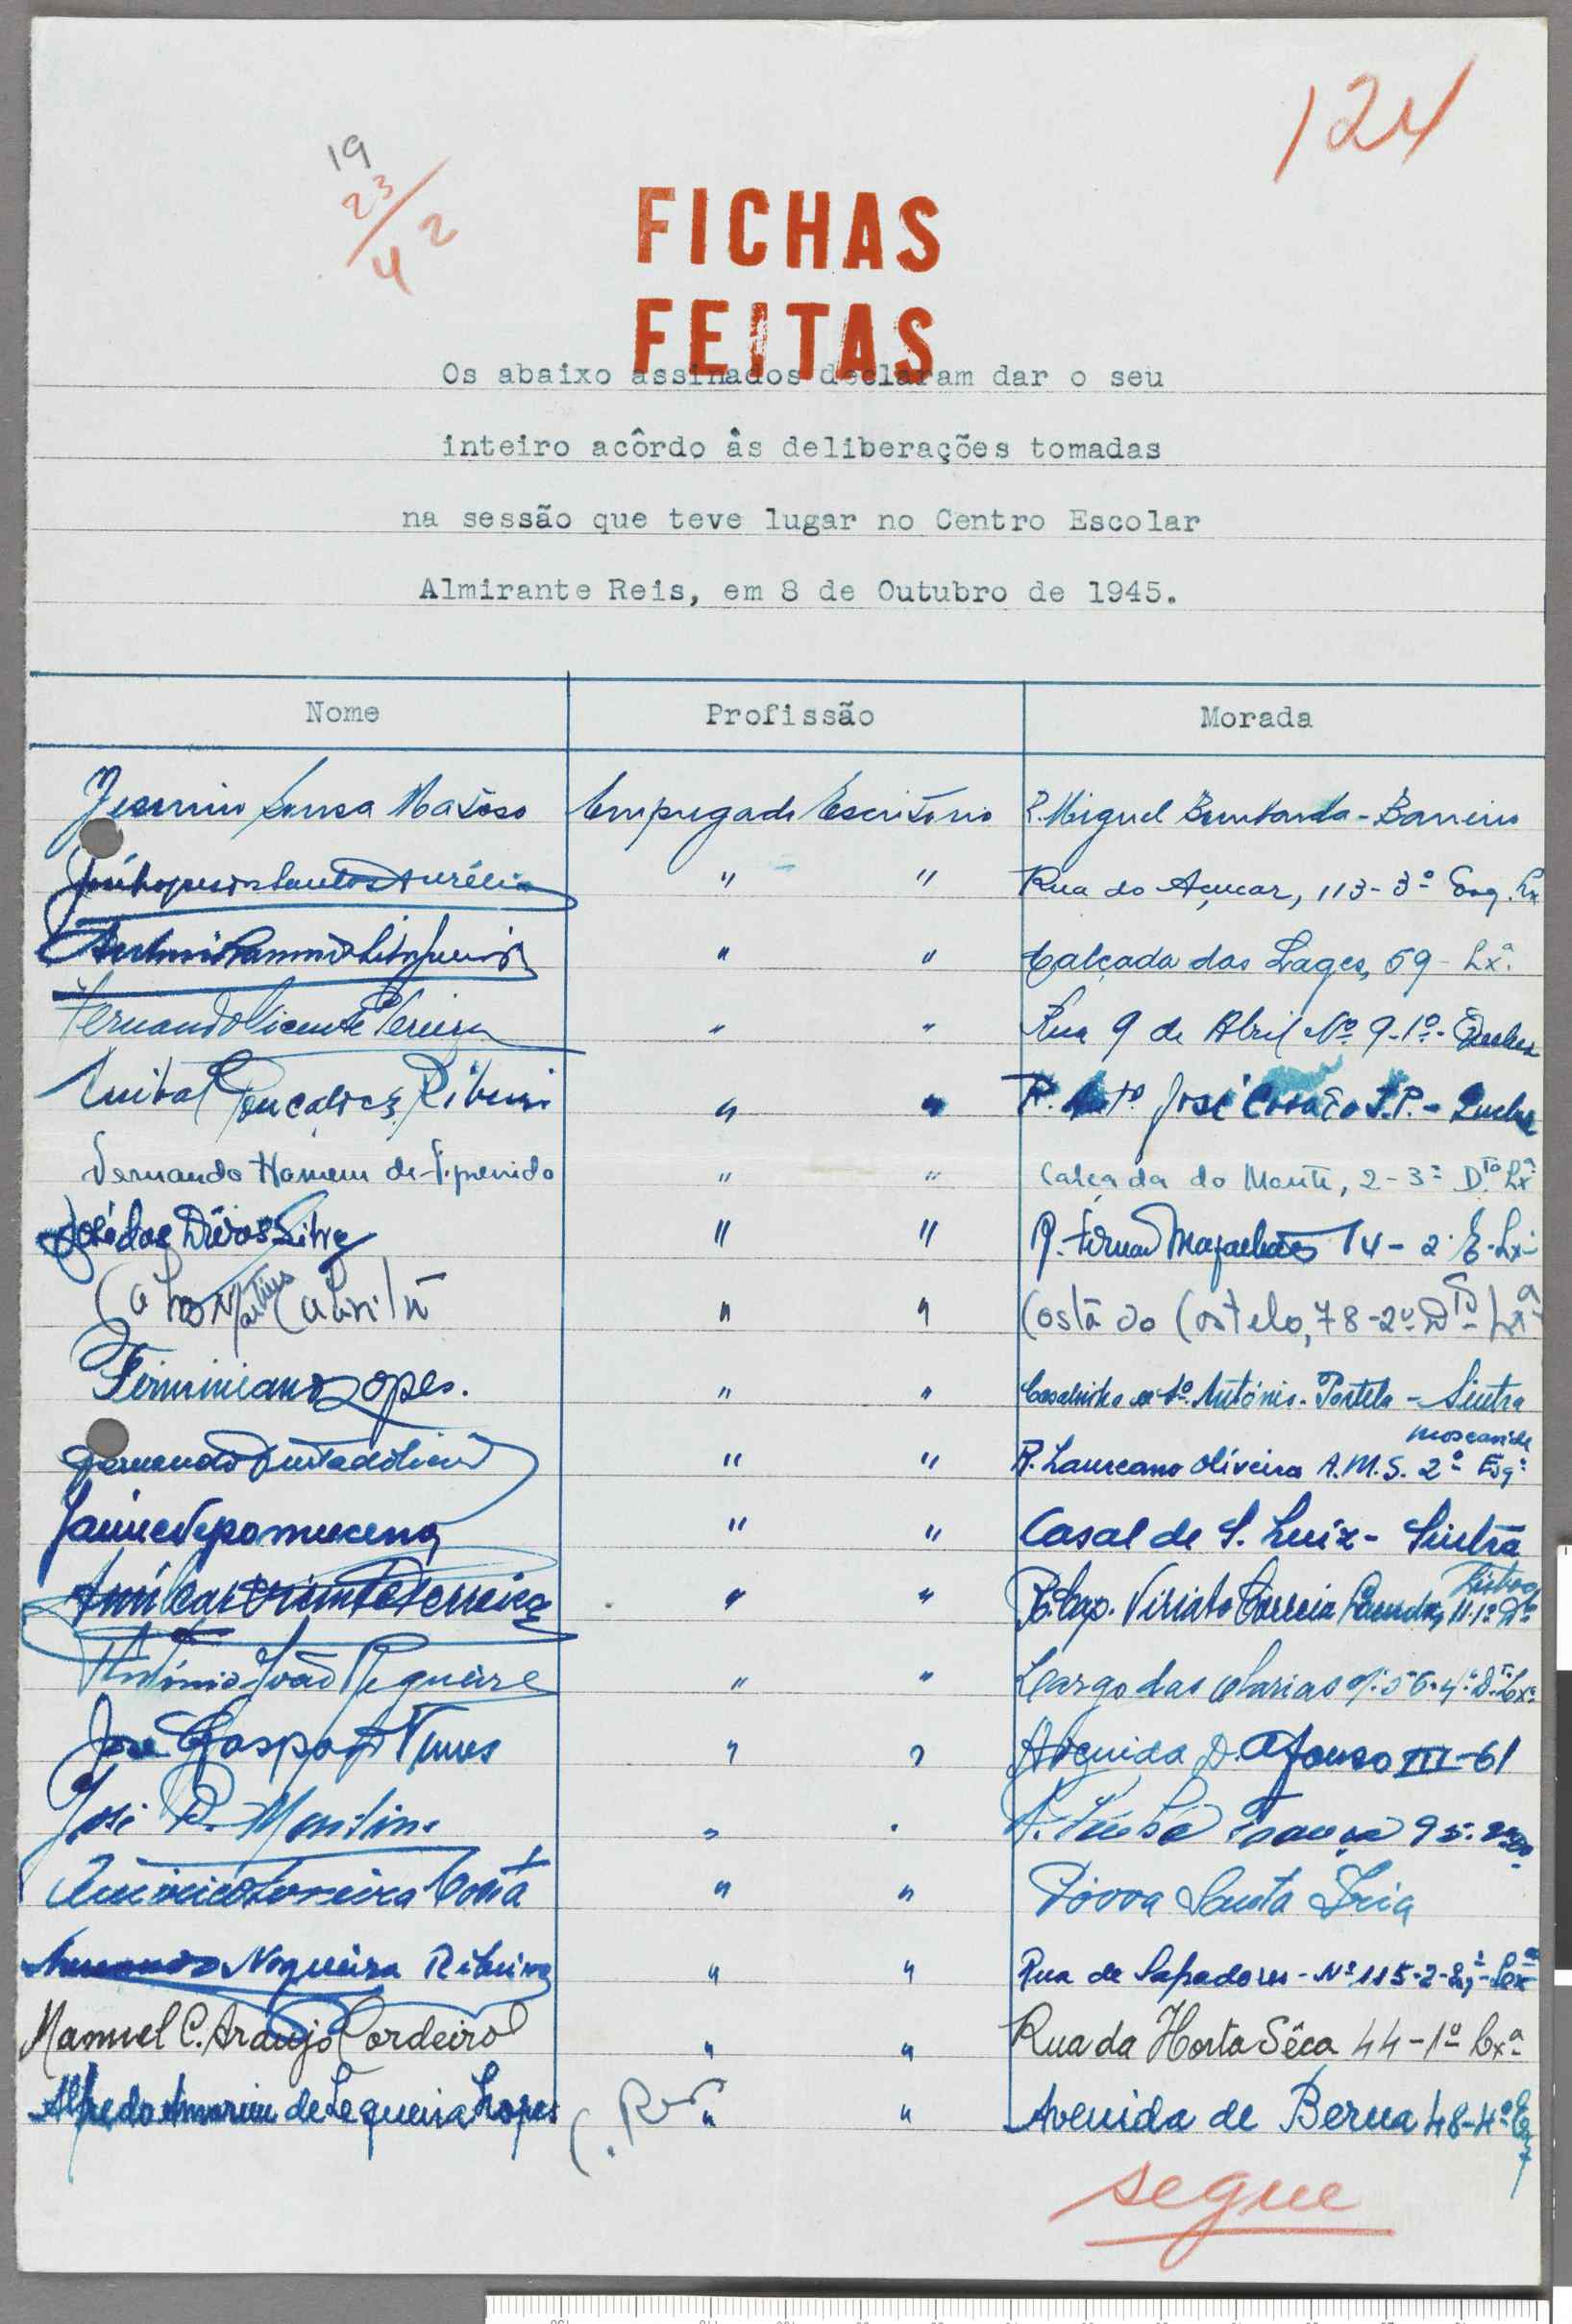 124
19
23
42
FICHAS
FEITAS
Os abaixo assinados declaram dar o seu
inteiro acôrdo às deliberações tomadas
na sessão que teve lugar no Centro Escolar
Almirante Reis, em 8 de Outubro de 1945.
Nome Profissão Morada
Sousa Matoso Empregado Escritório R. Miguel Bombarda - Barreiro
José dos Santos Aurélio " " Rua do Açucar, 113-3º Esq. Lx
" " Calçada das Lages, 59 - Lxª.
Fernando Vicente Pereira " " Rua 9 de Abril Nº 9-1º- Queluz
Anibal Gonçalves Ribeiro " " R. José - Queluz
Fernando Homem de Figueiredo " " Calçada do Monte, 2-3º D.to Lxª
José das Silva " " R. Fernão Magalhães 14-2º E. Lx
Carlos Martins " " Costa do Castelo, 78-2º Dto - Lxª
Firminiano Lopes. " " Casalinho de Stº. António. Portela - Sintra
Fernando " " R. Laureano Oliveira A.M.S. 2º Esqº Moscavide
Jaime Nepomuceno " " Casal de S. Luiz - Sintra
Amílcar Ferreira " " R. Cap. Viriato Correia Lacerda, 11-1º Dto Lisboa
António João Regueira " " Largo das Olarias Nº 56-4º D.to Lxª
José Gaspar Nunes " " Avenida D. Afonso III-61
José R. Martins " " 95.
Teixeira Costa " " Póvoa Santa Iria
Armando Nogueira Ribeiro " " Rua de Sapadores - Nº 115-2-Esq - Lxª
Manuel C. Araujo Cordeiro " " Rua da Horta Sêca 44-1º Lxª
Alfredo Amorim de Sequeira Lopes " " Avenida de Berna 48-4º Esq
segue